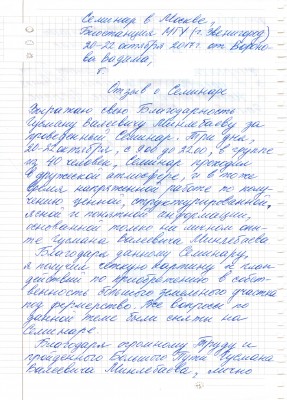 Семинар в Москве,
Биостанция МГУ (г. Звенигород)
20-22 октября 2017г. от Воронова
ва Вадима,
Отзыв о Семинаре
Выражаю свою Благодарность
Гусману Валеевичу Минлебаеву за
проведенный Семинар. Три дня,
20-22 октября, с 900 до 2200, в группе
из 40 человек, Семинар проходил
в дружеской атмосфере, и в тоже
время напряженной работе по полу-
чению ценной, структурированной,
ясной и понятной информации,
основанной только на личном опы-
те Гусмана Валеевича Минлебаева
Благодаря данному Семинару,
я получил четкую картину и план
действий по приобретению в собст-
венность Большого земельного участка
под фермерство. Все вопросы по
данной теме были сняты на
Семинаре.
Благодаря огромному Труду и
пройденного большого Пути Гусмана
Валеевича Минлебаева, лично